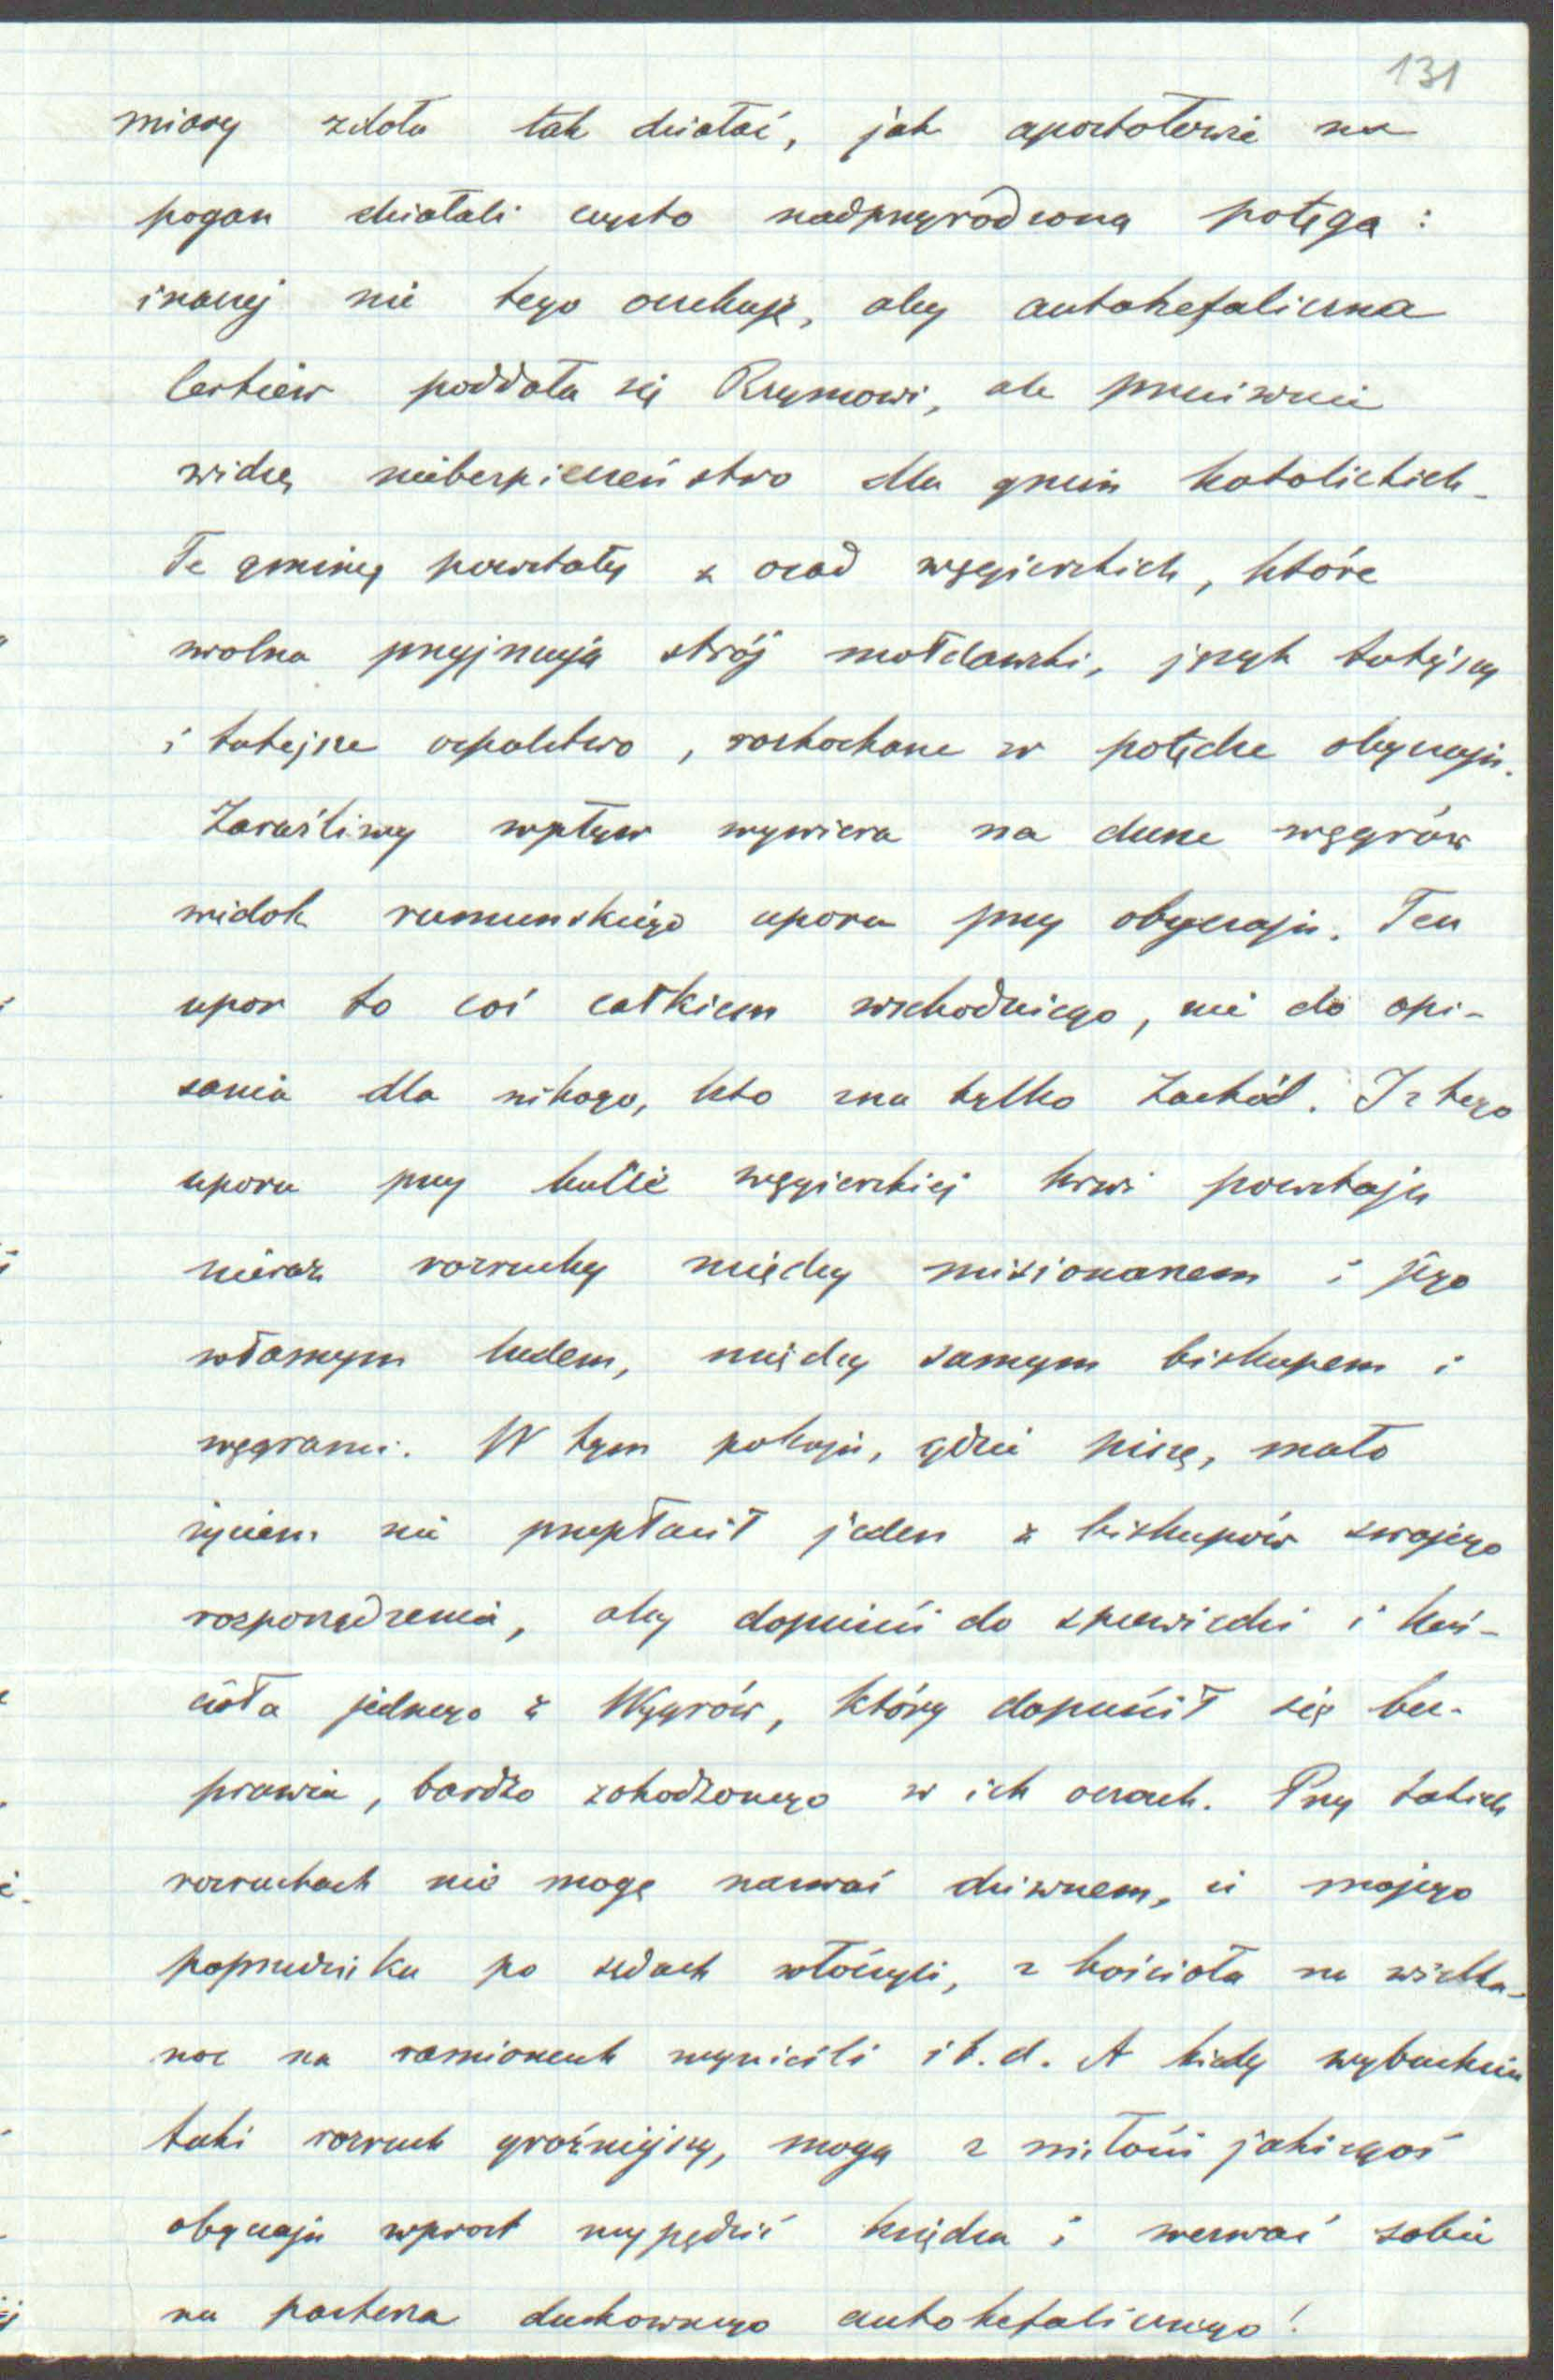 131
miary zdoła tak działać, jak apostołowie na
pogan działali czysto nadprzyrodzoną potęgą:
inaczej nie tego oczekuję, aby autokefaliczna
Cerkiew poddała się Rzymowi, ale przeciwnie
widzę niebezpieczeństwo dla gmin katolickich.
Te gminy powstały z osad węgierskich, które
wolna przyjmują strój mołdawski, język tutejszy
i tutejsze ospalstwo, rozkochane w potędze obyczaju.
Zaraźliwy wpływ wywiera na dusze węgrów
widok rumunskiego uporu przy obyczaju. Ten
upor to coś całkiem wschodniego, nie do opi-
sania dla nikogo, kto zna tylko Zachód. Iz tego
uporu przy bucie węgierskiej krwi powstają
nieraz rozruchy między misionarzem i jego
własnym ludem, między samym biskupem i
węgrami. W tym pokoju, gdzie piszę, mało
życiem nie przepłacił jeden z biskupów swojego
rozporządzenia, aby dopuścić do spowiedzi i koś-
cioła jednego z Węgrów, który dopuścił się bez-
prawia, bardzo zohodzonego w ich oczach. Przy takich
rozruchach nie mogę nazwać dziwnem, iż mojego
poprzednika po sądach włóczyli, z kościoła na wielka-
noc na ramionach wynieśli i t.d. A kiedy wybuchnie
taki rozruch groźniejszy, mogą z miłości jakiegoś
obyczaju wprost wypędzić księdza i wezwać sobie
na pasterza duchownego autokefalicznego!